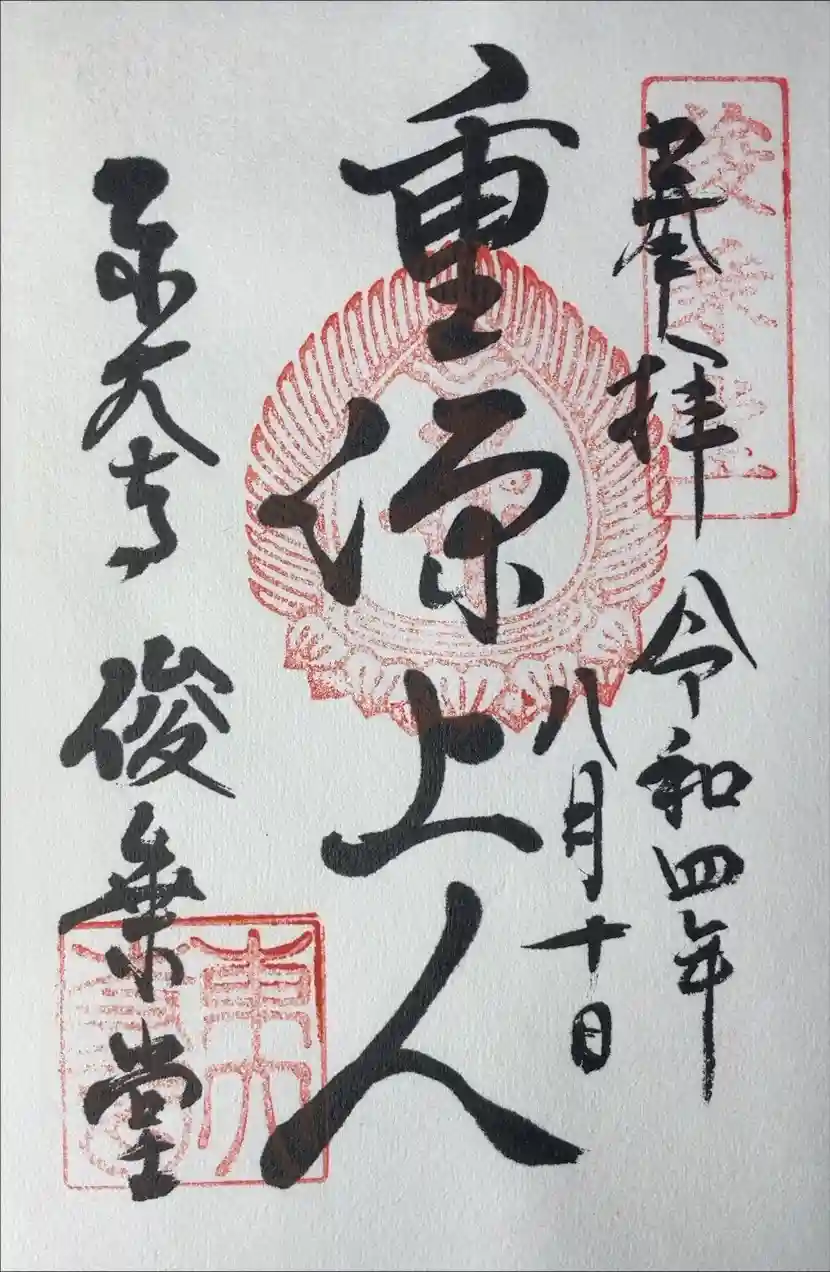 奉拝 令和四年
八月十日
重源上人
東大寺 俊乗堂
俊乗堂
東大寺